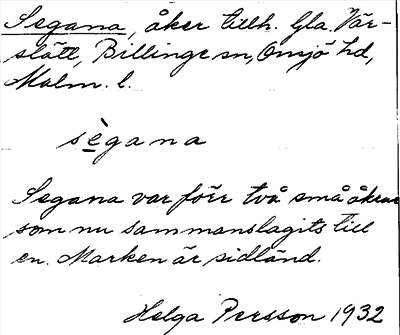 Segana, åker tillh. Gla. Vär-
slätt, Billinge sn, Onsjö hd,
Malm. l.
sègana
Segana var förr två små åkrar
som nu sammanslagits till
en. Marken är sidländ.
Helga Persson 1932